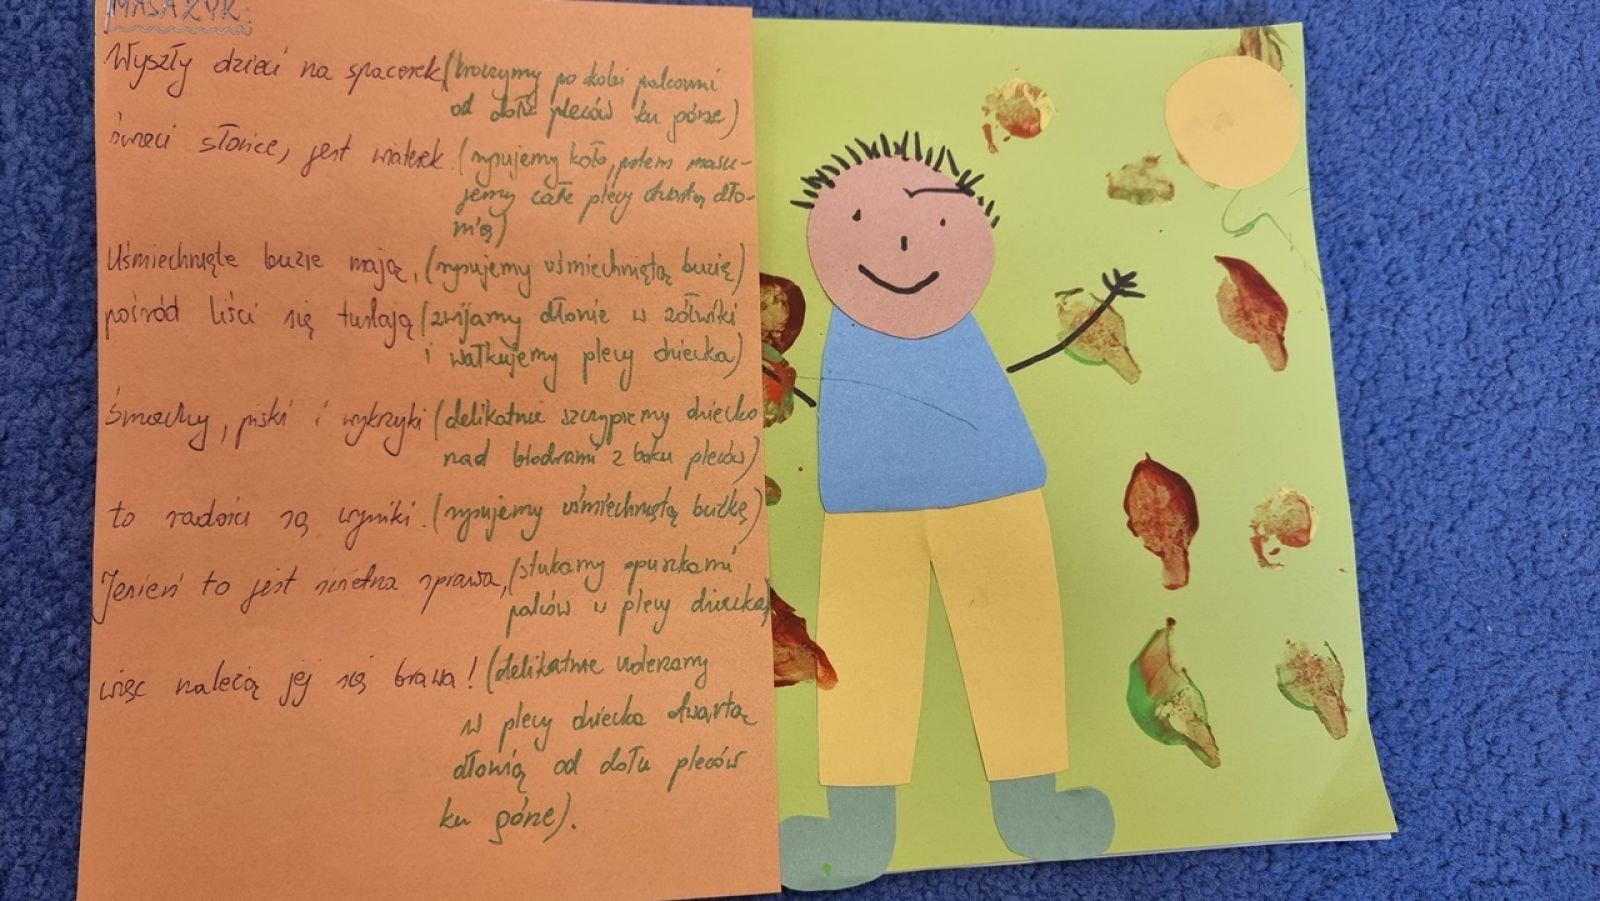 MASAŻYK:
Wyszły dzieci na spacerek (kroczymy po kolei palcami
od dołu pleców ku górze)
świeci słońce, jest wiaterek. (rysujemy koło, potem masu-
jemy całe plecy otwartą dło-
nią)
Uśmiechnięte buzie mają, (rysujemy uśmiechniętą buzię)
pośród liści się turlają (zwijamy dłonie w żółwiki
i wałkujemy plecy dziecka)
Śmiechy, piski i wykrzyki (delikatnie szczypiemy dziecko
nad biodrami z boku pleców)
to radości są wyniki. (rysujemy uśmiechniętą buźkę)
Jesień to jest świetna sprawa, (stukamy opuszkami
palców w plecy dziecka)
więc należą jej się brawa! (delikatnie uderzamy
w plecy dziecka otwartą
dłonią od dołu pleców
ku górze).